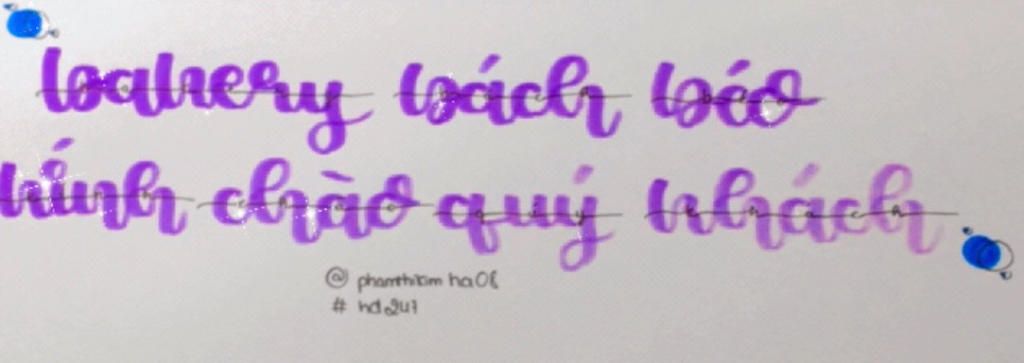 bakery bách béo
kính chào quý khách
@ phamthikimha08
# hd247